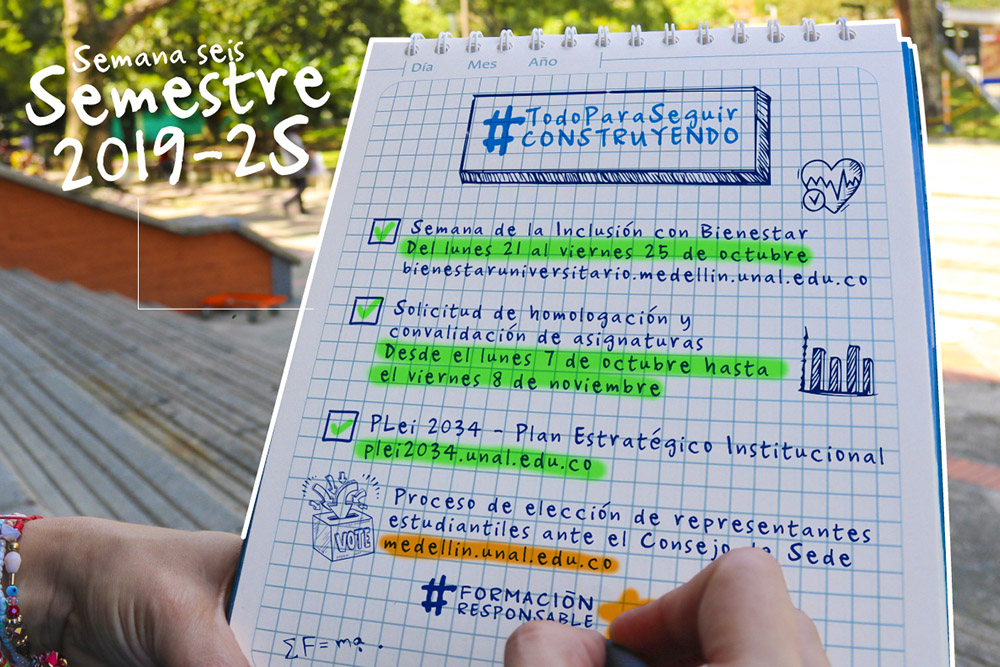 Semana seis
Semestre
2019-2S
Día Mes Año
#TodoParaSeguir
CONSTRUYENDO
Semana de la Inclusión con Bienestar
Del lunes 21 al viernes 25 de octubre
bienestaruniversitario.medellin.unal.edu.co
Solicitud de homologación y
convalidación de asignaturas
Desde el lunes 7 de octubre hasta
el viernes 8 de noviembre
PLei 2034 - Plan Estratégico Institucional
plei2034.unal.edu.co
VOTE
Proceso de elección de representantes
estudiantiles ante el Consejo de Sede
medellin.unal.edu.co
#FORMACIÓN
RESPONSABLE
ΣF=ma.